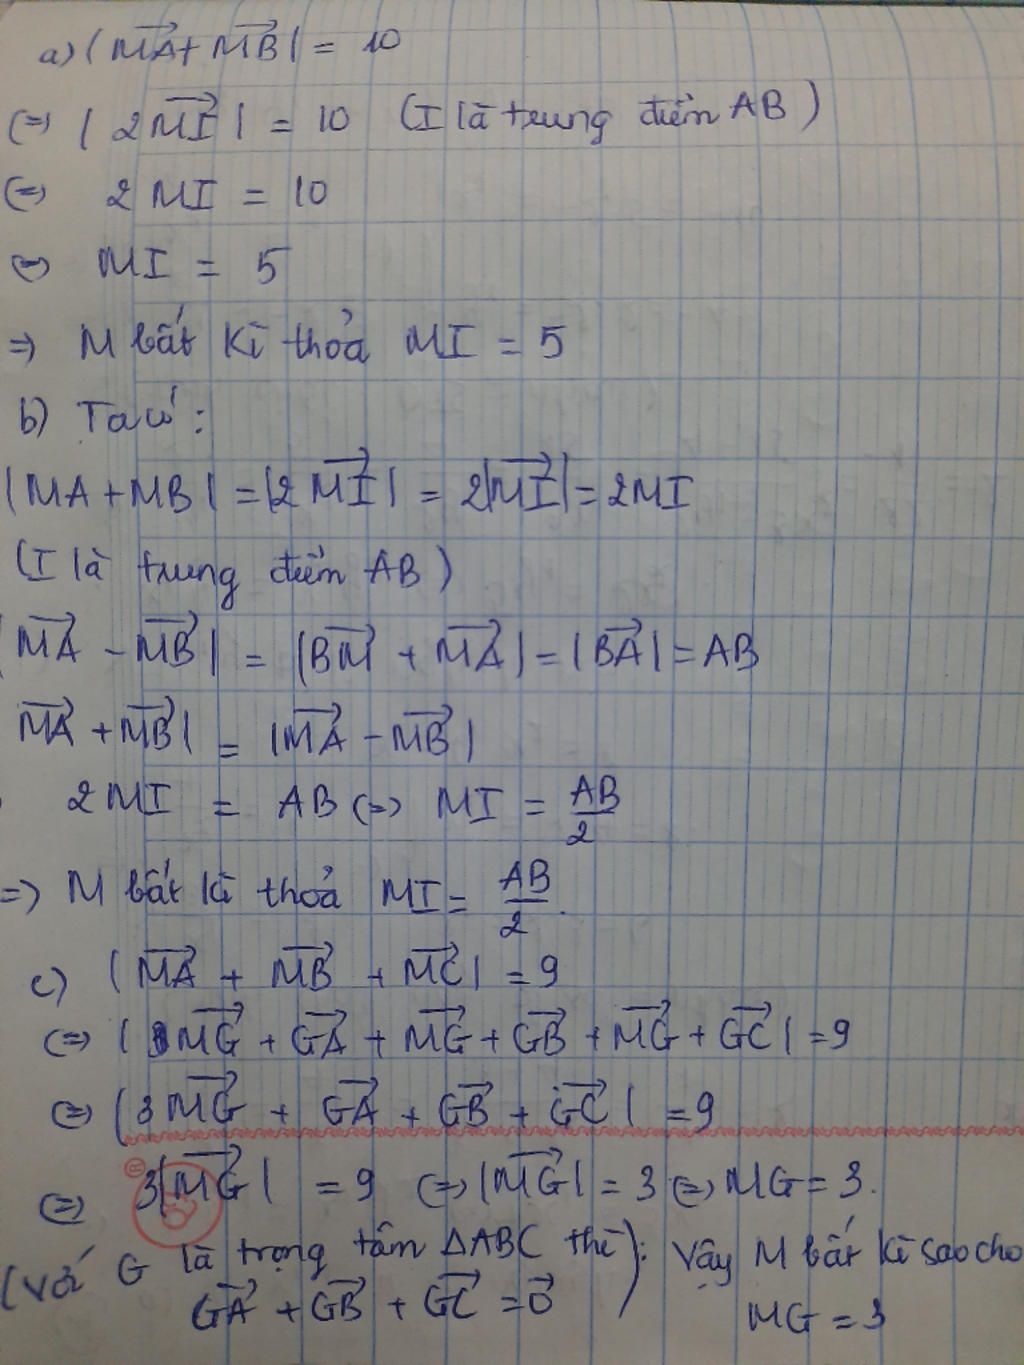 a) |MA→ + MB→| = 10
(=) | 2MI→ | = 10 (I là trung điểm AB)
(=) 2 MI = 10
(=) MI = 5
=> M bất kì thỏa MI = 5
b) Ta có :
|MA + MB| = |2 MI→| = 2|MI→| = 2MI
(I là trung điểm AB)
MA→ - MB→| = |BM→ + MA→| = |BA→| = AB
MA→ + MB→| = |MA→ - MB→|
2 MI = AB (=) MI = AB/2
=> M bất kì thỏa MI = AB/2.
c) |MA→ + MB→ + MC→| = 9
(=) | MG→ + GA→ + MG→ + GB→ + MG→ + GC→| = 9
(=) |3MG→ + GA→ + GB→ + GC→| = 9
(=) 3|MG→| = 9 (=) |MG→| = 3 (=) MG = 3.
(Với G là trọng tâm ΔABC thì): Vậy M bất kì sao cho
GA→ + GB→ + GC→ = 0→ MG = 3